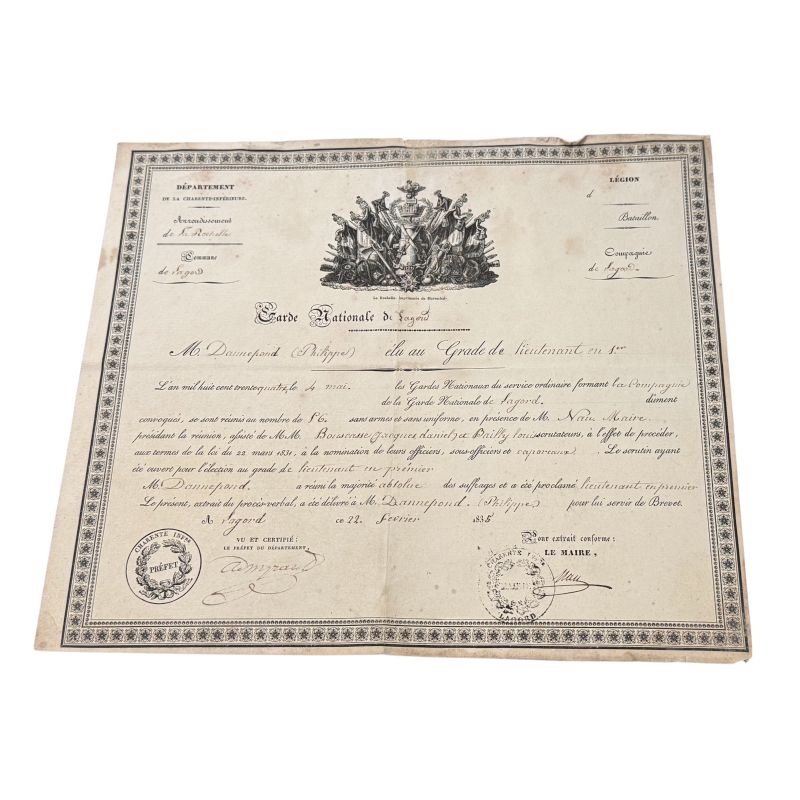 DÉPARTEMENT
DE LA CHARENTE-INFÉRIEURE.
Arrondissement
de La Rochelle
Commune
de Lagord
LÉGION
d
Bataillon.
Compagnie
de Lagord.
La Rochelle, Imprimerie de Mareschal.
Garde Nationale de Lagord
M. Dannepond (Philippe) élu au Grade de lieutenant en 1er
L'an mil huit cent trente quatre, le 4 mai. les Gardes Nationaux du service ordinaire formant la Compagnie
de la Garde Nationale de Lagord. dûment
convoqués, se sont réunis au nombre de 86. sans armes et sans uniforme, en présence de M. Nau Maire.
présidant la réunion, assisté de MM. Jacques Daniel, et Bailly louis scrutateurs, à l'effet de procéder,
aux termes de la loi du 22 mars 1831, à la nomination de leurs officiers, sous-officiers et caporaux. Le scrutin ayant
été ouvert pour l'élection au grade de lieutenant en prémier
M. Dannepond. a réuni la majorité absolue des suffrages et a été proclamé lieutenant en premier
Le présent, extrait du procès-verbal, a été délivré à M. Dannepond. (Philippe) pour lui servir de Brevet.
A Lagord ce 22 Fevrier 1835
VU ET CERTIFIÉ:
LE PRÉFET DU DÉPARTEMENT,
Pour extrait conforme:
LE MAIRE,
Nau
CHARENTE INFre
PRÉFET
CHARENTE INFre
LAGORD